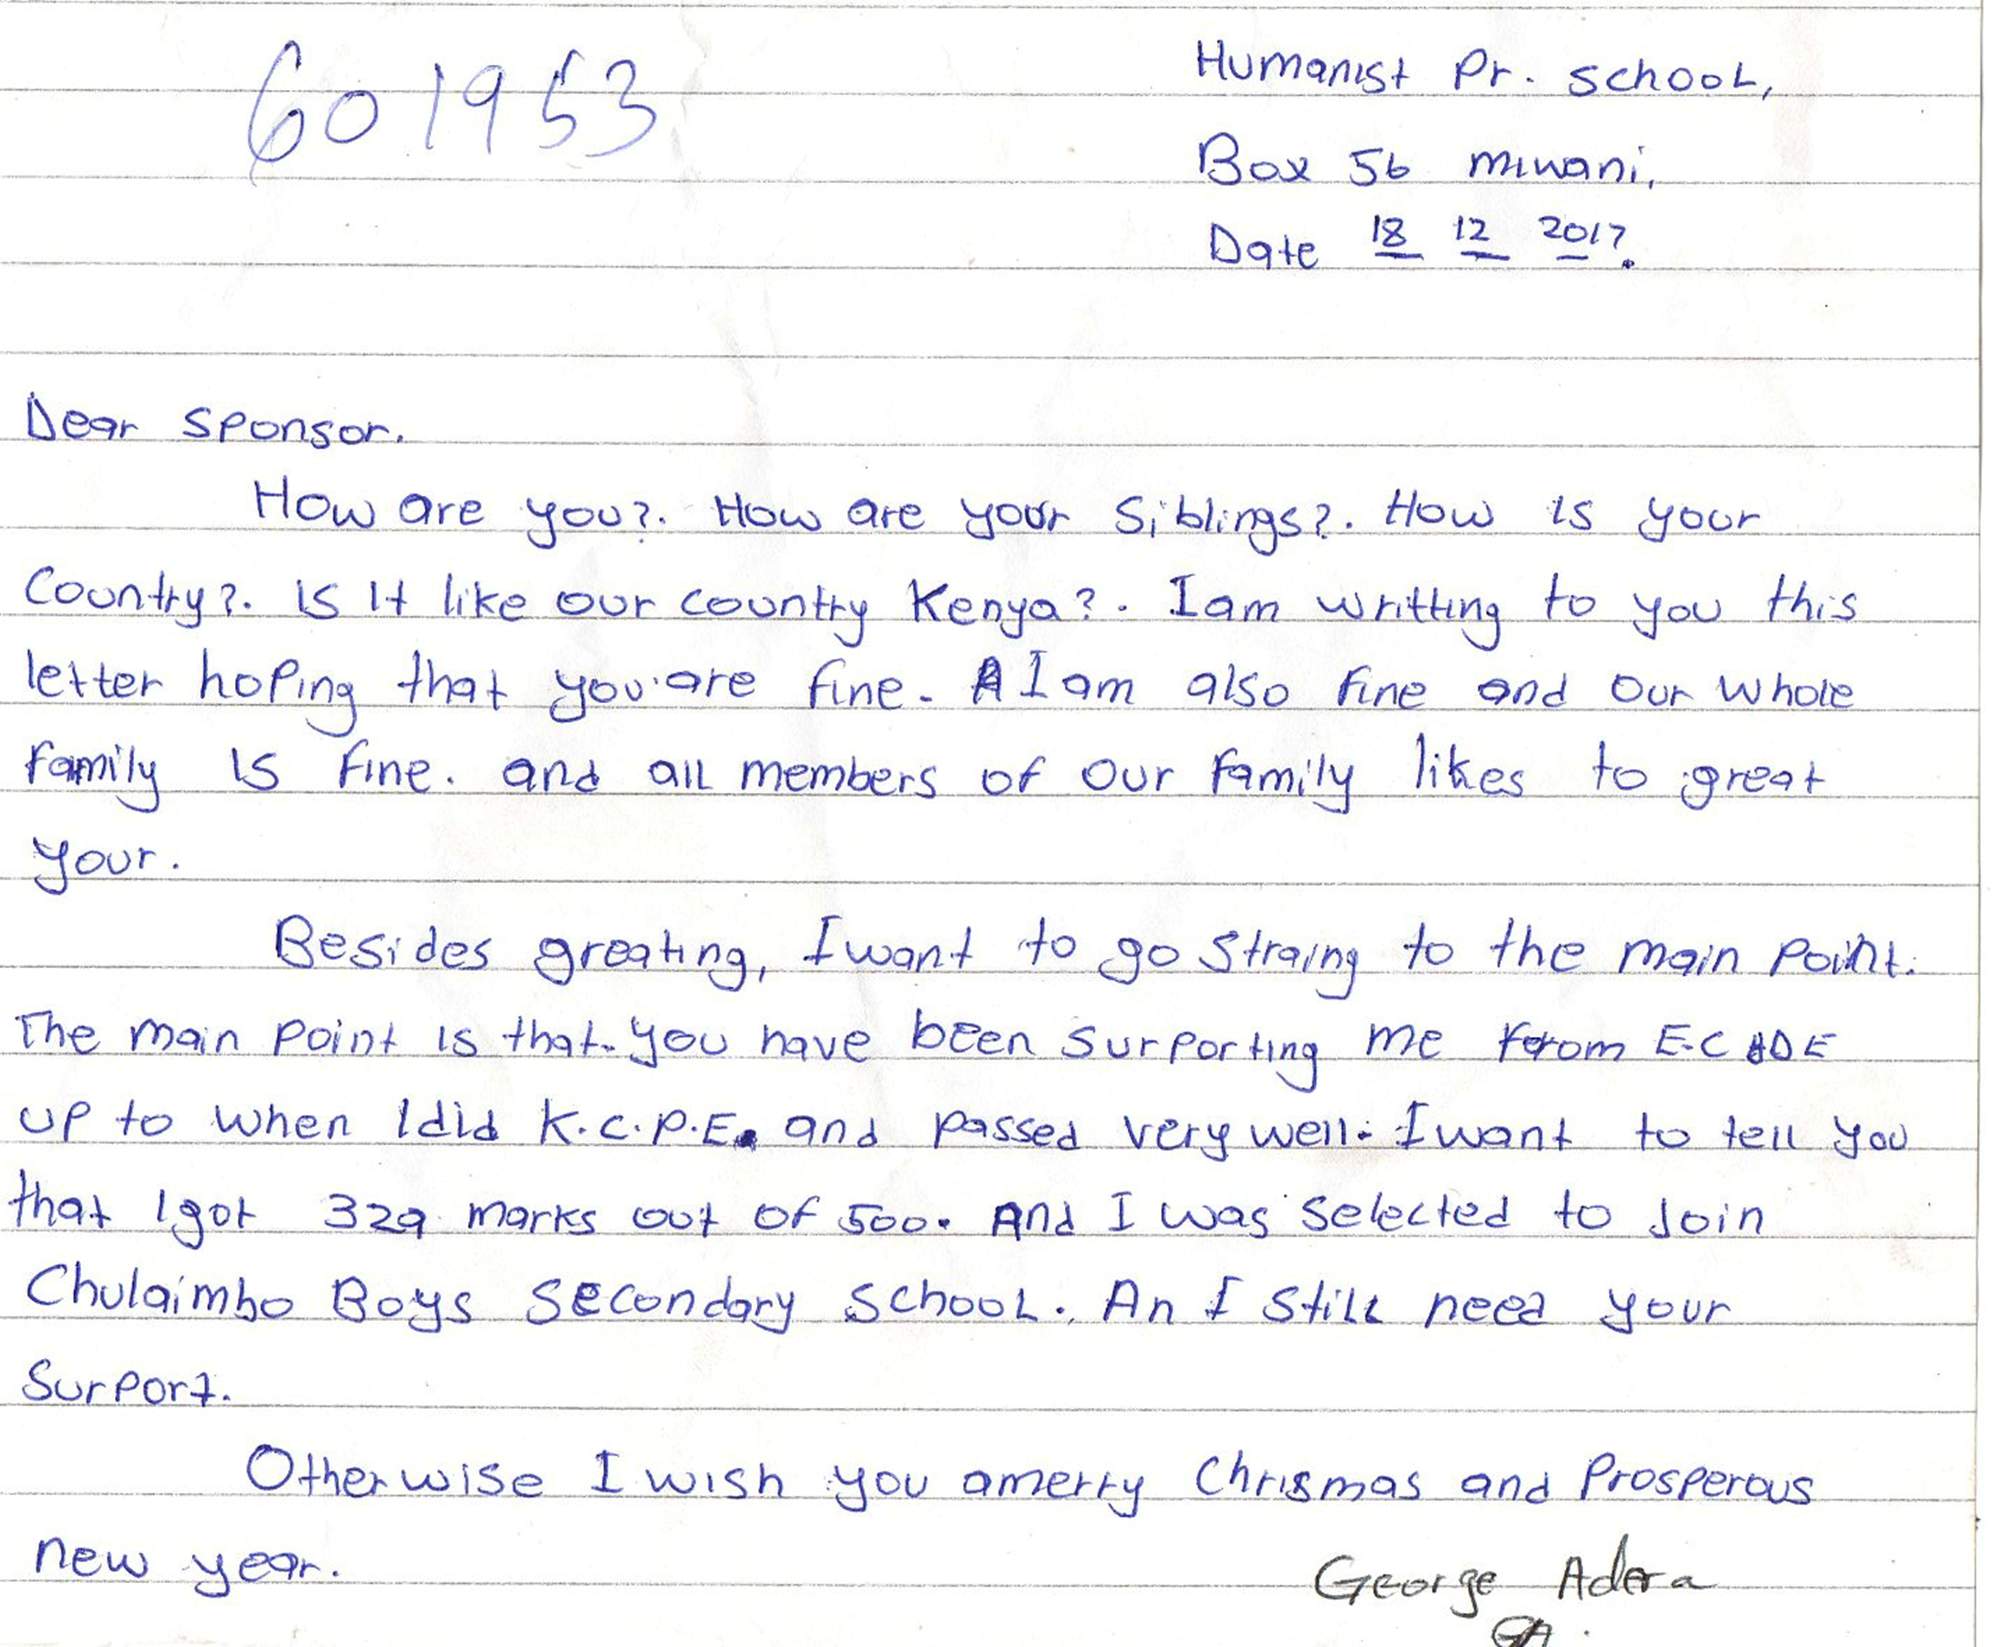 601953
Humanist Pr. School,
Box 56 miwani,
Date 18 12 2017.
Dear Sponsor.
How are you?. How are your Siblings?. How is your
Country?. Is It like our country Kenya?. I am writting to you this
letter hoping that you are fine. I am also fine and our whole
family is fine. and all members of our family likes to great
your.
Besides greating, I want to go Straing to the main Point.
The main Point is that you have been Surporting me from E.C DE
up to when I did K.C.P.E. and Passed very well. I want to tell you
that I got 329 marks out of 500. And I was Selected to Join
Chulaimbo Boys Secondary School. An I still need your
Surport.
Otherwise I wish you amerry Chrismas and Prosperous
new year.
George Adera
GA.